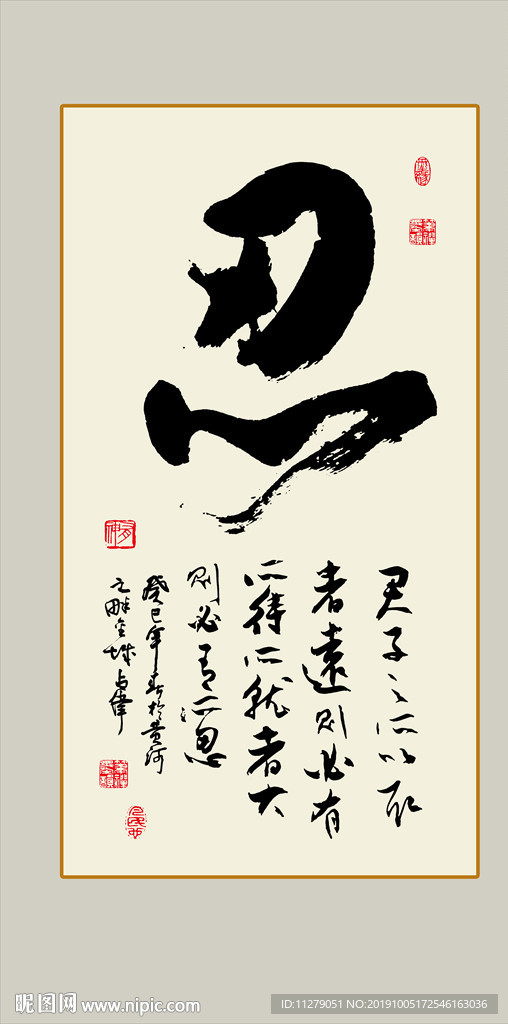 忍
君子之所以取
者遠則必有
所待所就者大
則必有所忍
癸巳年春於黄河
之畔金城占偉
昵图网 www.nipic.com
ID:11279051 NO:20191005172546163036